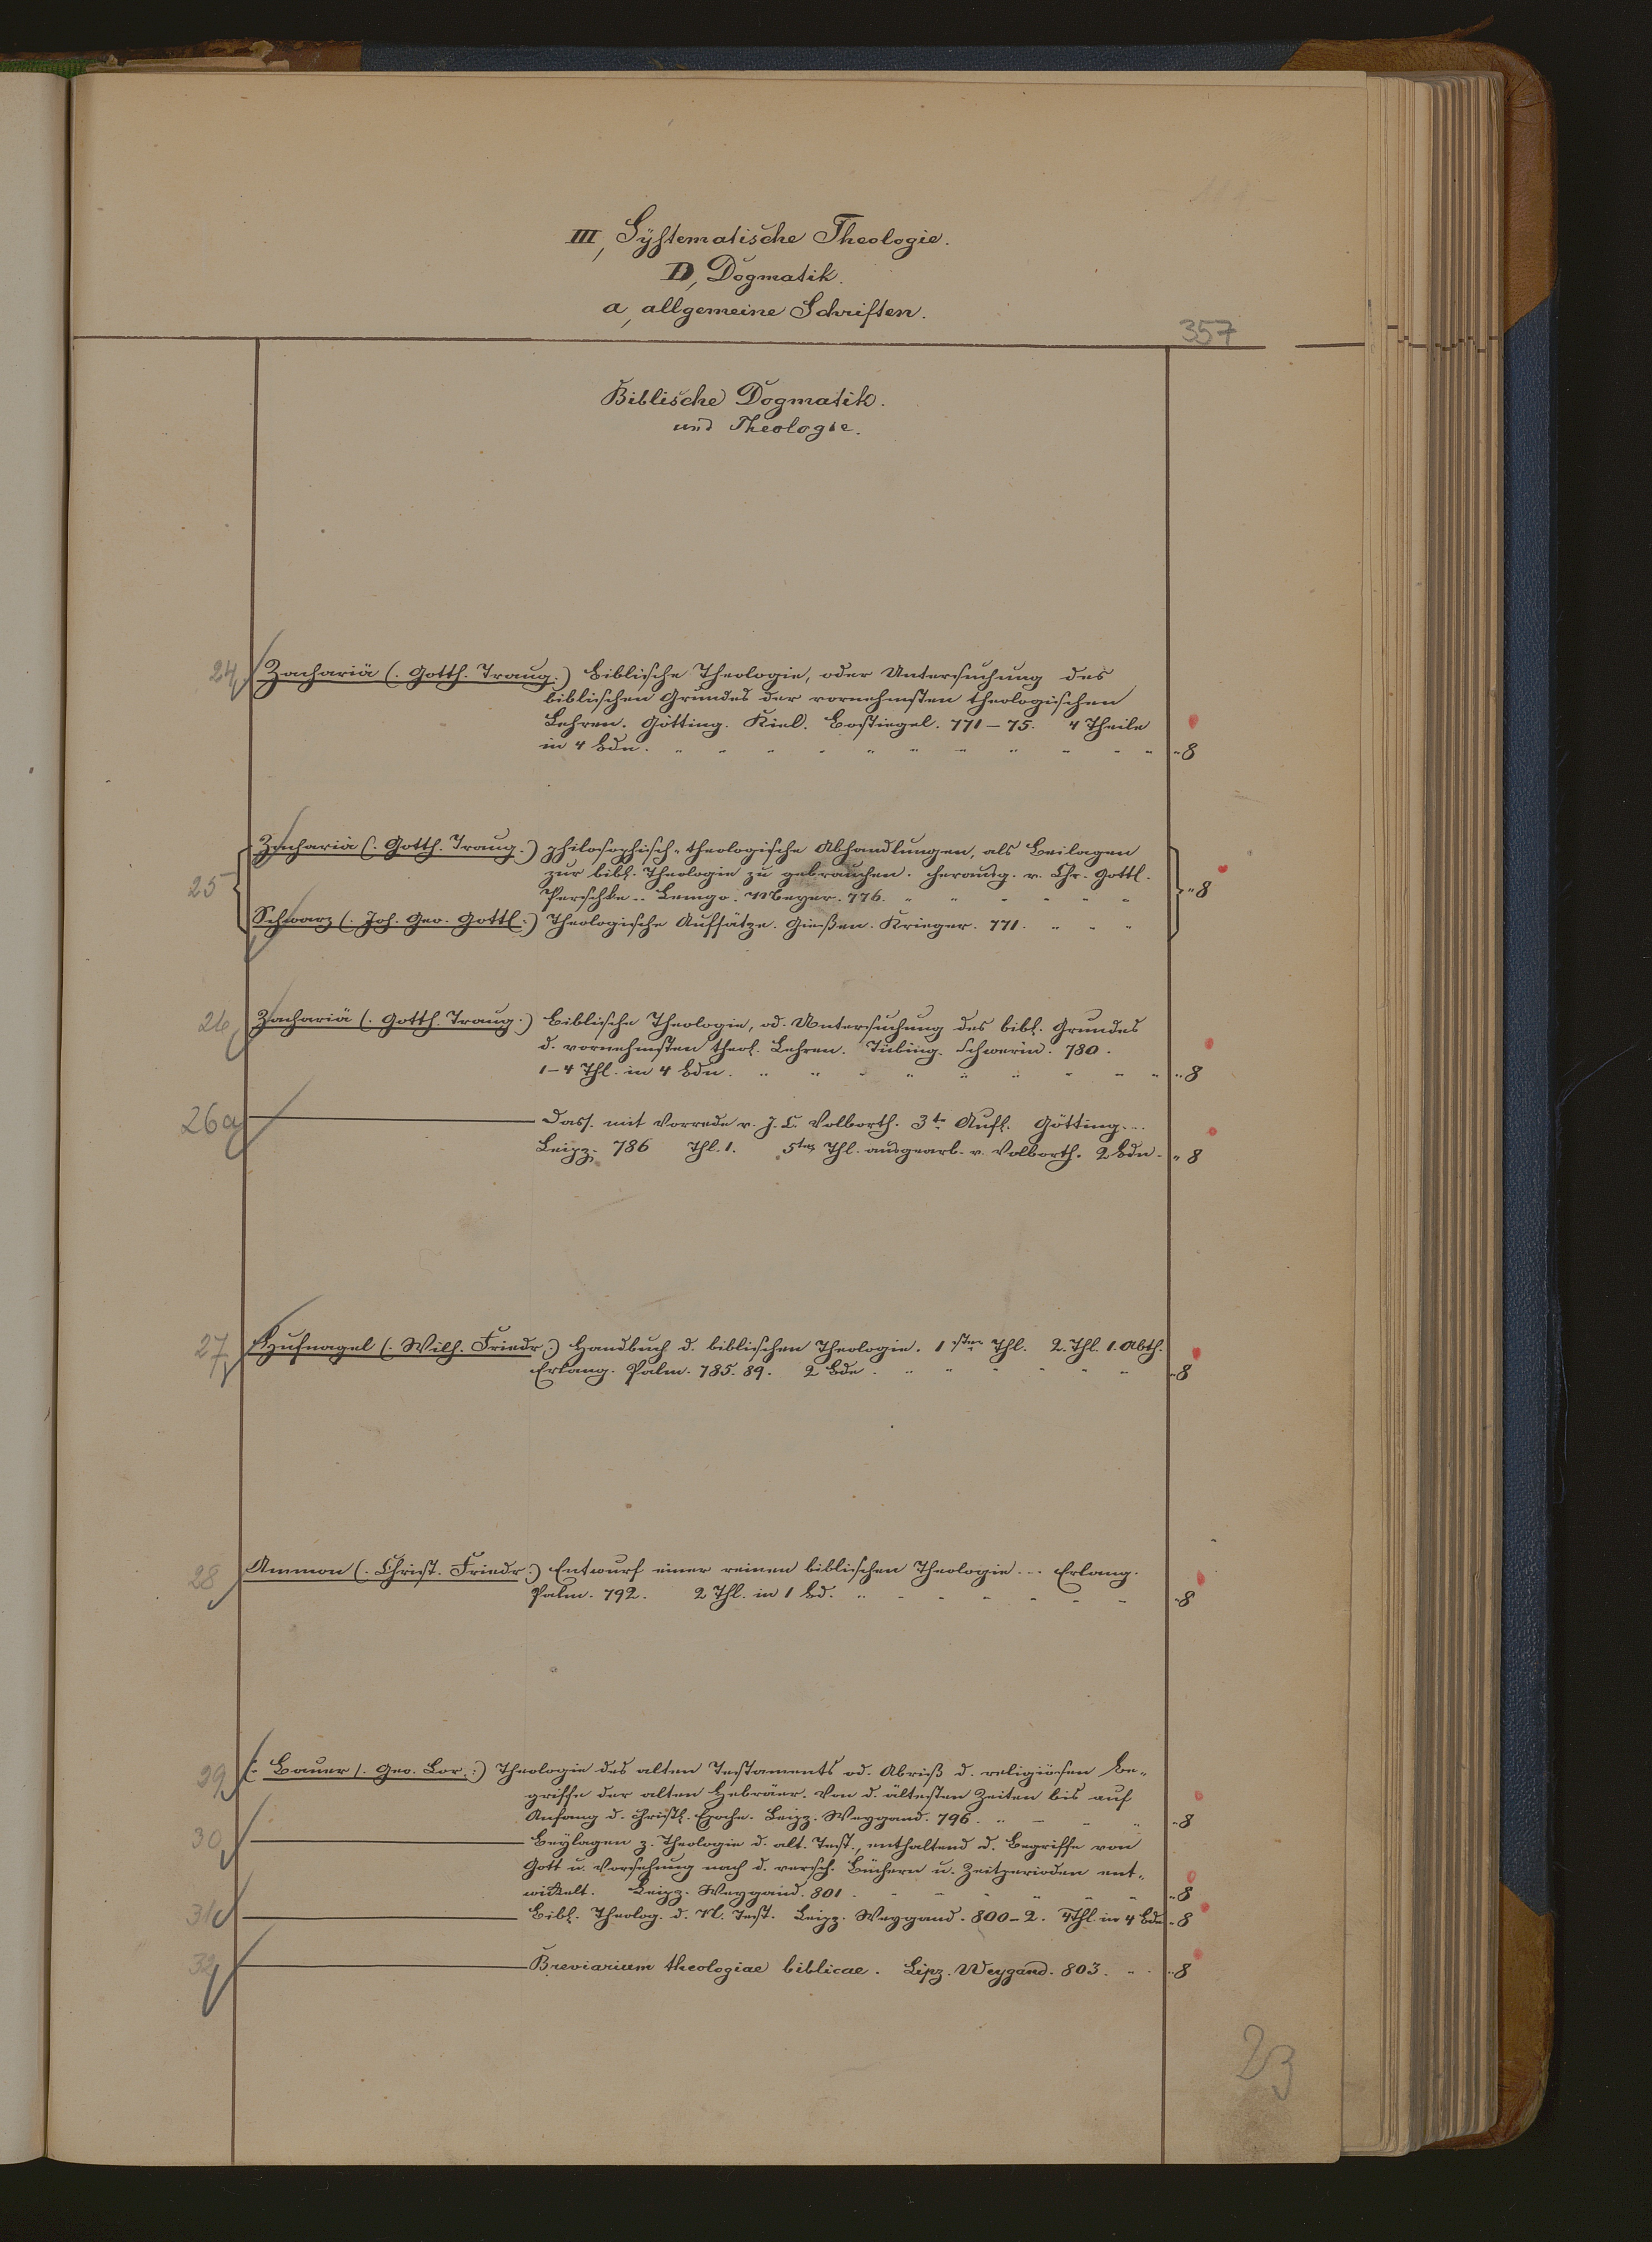 III, Systematische Theologie.
D, Dogmatik.
a, allgemeine Schriften.
357
Biblische Dogmatik.
und Theologie.
24 Zachariä (: Gotth. Traug. :) Biblische Theologie, oder Untersuchung des
biblischen Grundes der vornehmsten theologischen
Lehren. Götting. Kiel. Bostiegel. 771–75. 4 Theile
in 4 Bdn. „ „ „ „ „ „ „ „ „ „ „ „ 8
25 Zachariä (: Gotth. Traug. :) philosophisch-theologische Abhandlungen, als Beilagen
zur bibl. Theologie zu gebrauchen. herausg. v. Chr. Gottl.
Perschke .. Lemgo. Meyer. 776. „ „ „ „ „ „ „ 8
Schwarz (: Joh. Geo. Gottl. :) Theologische Aufsätze. Gießen. Krieger. 771. „ „ „
26 Zachariä (: Gotth. Traug. :) Biblische Theologie, od. Untersuchung des bibl. Grundes
d. vornehmsten theol. Lehren. Tübing. Schwerin. 780.
1–4 Thl. in 4 Bdn. „ „ „ „ „ „ „ „ „ „ 8
26a ——— Dass. mit Vorrede v. J. C. Volborth. 3te Aufl. Götting. ...
Leipz. 786 Thl. 1. 5ter Thl. ausgearb. v. Volborth. 2 Bdn. „ 8
27 Hufnagel (: Wilh. Friedr. :) Handbuch d. biblischen Theologie. 1ster Thl. 2. Thl. 1. Abth.
Erlang. Palm. 785. 89. 2 Bde. „ „ „ „ „ „ „ 8
28 Ammon (: Christ. Friedr. :) Entwurf einer reinen biblischen Theologie ... Erlang.
Palm. 792. 2 Thl. in 1 Bd. „ „ „ „ „ „ „ „ 8
29 (: Bauer (. Geo. Lor. :) Theologie des alten Testaments od. Abriß d. religiösen Be-
griffe der alten Hebräer. Von d. ältesten Zeiten bis auf
Anfang d. christl. Epoche. Leipz. Weygand. 796. „ „ „ „ „ 8
30 ——— Beÿlagen z. Theologie d. alt. Test., enthaltend d. Begriffe von
Gott u. Vorsehung nach d. versch. Büchern u. Zeitperioden ent-
wickelt. Leipz. Weygand. 801. „ „ „ „ „ „ „ 8
31 ——— Bibl. Theolog. d. N. Test. Leipz. Weygand. 800–2. 4 Thl. in 4 Bdn „ 8
32 ——— Breviarium theologiae biblicae. Lipz. Weygand. 803. „ „ „ 8
23